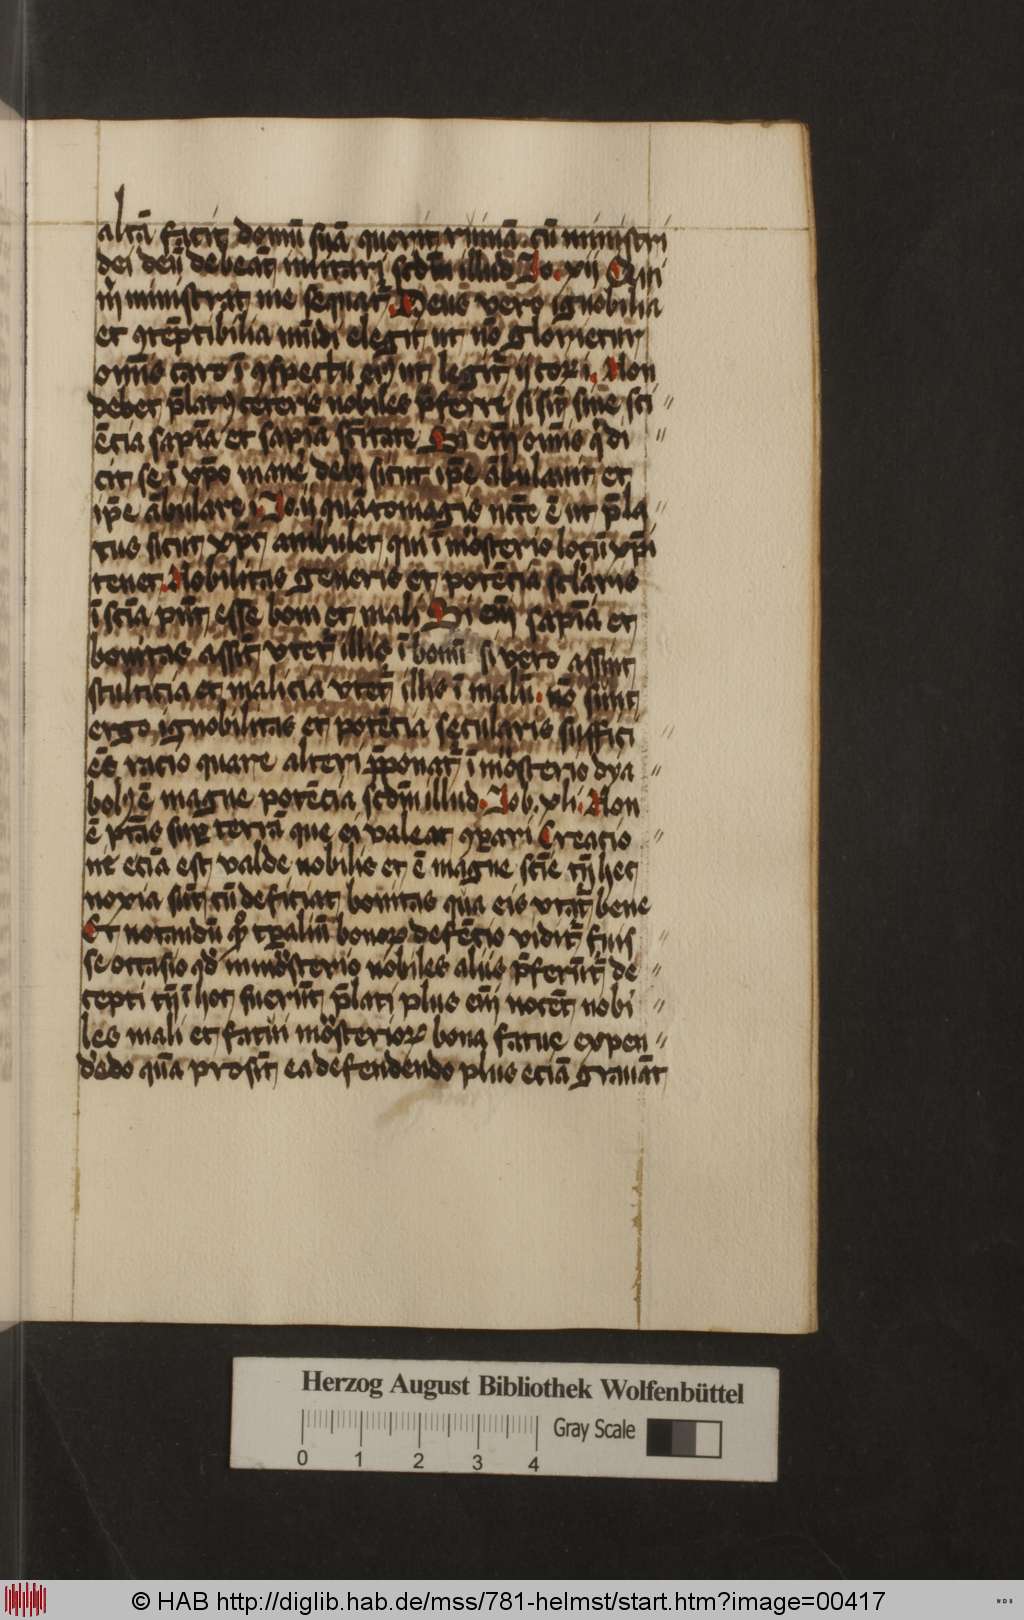 altā facit domū suā querit ruinā cū ministri
dei deū debeāt imitari scdm illud Jo. xii Qui
m̄ ministrat me sequat᷑ Deus vero ignobilia
et ꝯtēptibilia mūdi elegit ut nō glorietur
omīs caro ī ꝯspectu eiꝰ ut legit᷑ i cor. i. Non
debet p̄latꝰ ceteris nobiles p̄ferre si sūt sine sci
ēcia sapīa et sapīa sc̄itate Si em̄ omīs q̄ di
cit se ī xp̄o mane debꝫ sicut ip̄e ābulauit et
ip̄e ābulare i Jo. ii quātomagis nc̄c̄e ē ut p̄la
tus sicut xp̄c ambulet qui ī mōsterio locū xp̄i
tenet Nobilitas generis et potēcia sc̄laris
ī sc̄ia pn̄t esse boni et mali Si em̄ sapīa et
bonitas assit vtet᷑ illis ī bonū si vero assint
stulticia et malicia vtet᷑ illis ī malū. nō sunt
ergo ignobilitas et potēcia secularis suffici
ēs racio quare alteri p̄ponat᷑ ī mōsterio dya
bolꝰ ē magne potēcia scdm illud. Job. xli. Non
ē ptās suꝑ terrā que ei valeat ꝯꝑari Creacio
ne eciā est valde nobilis et ē magne scīe tn̄ hec
noxia sūt cū deficiat bonitas qua eis vtat᷑ bene
Et notandū ꝙ tꝑaliū bonoꝝ defēcio vidit᷑ fuis
se occasio qd̄ in mōsterio nobiles aliis p̄ferūt᷑ de
cepti tn̄ ī hoc fuerūt p̄lati plus em̄ nocēt nobi
les mali et fatui mōsterioꝝ bona fatue expen
dēdo quā prosūt ea defendendo plus eciā grauāt
Herzog August Bibliothek Wolfenbüttel
Gray Scale
0 1 2 3 4
© HAB http://diglib.hab.de/mss/781-helmst/start.htm?image=00417